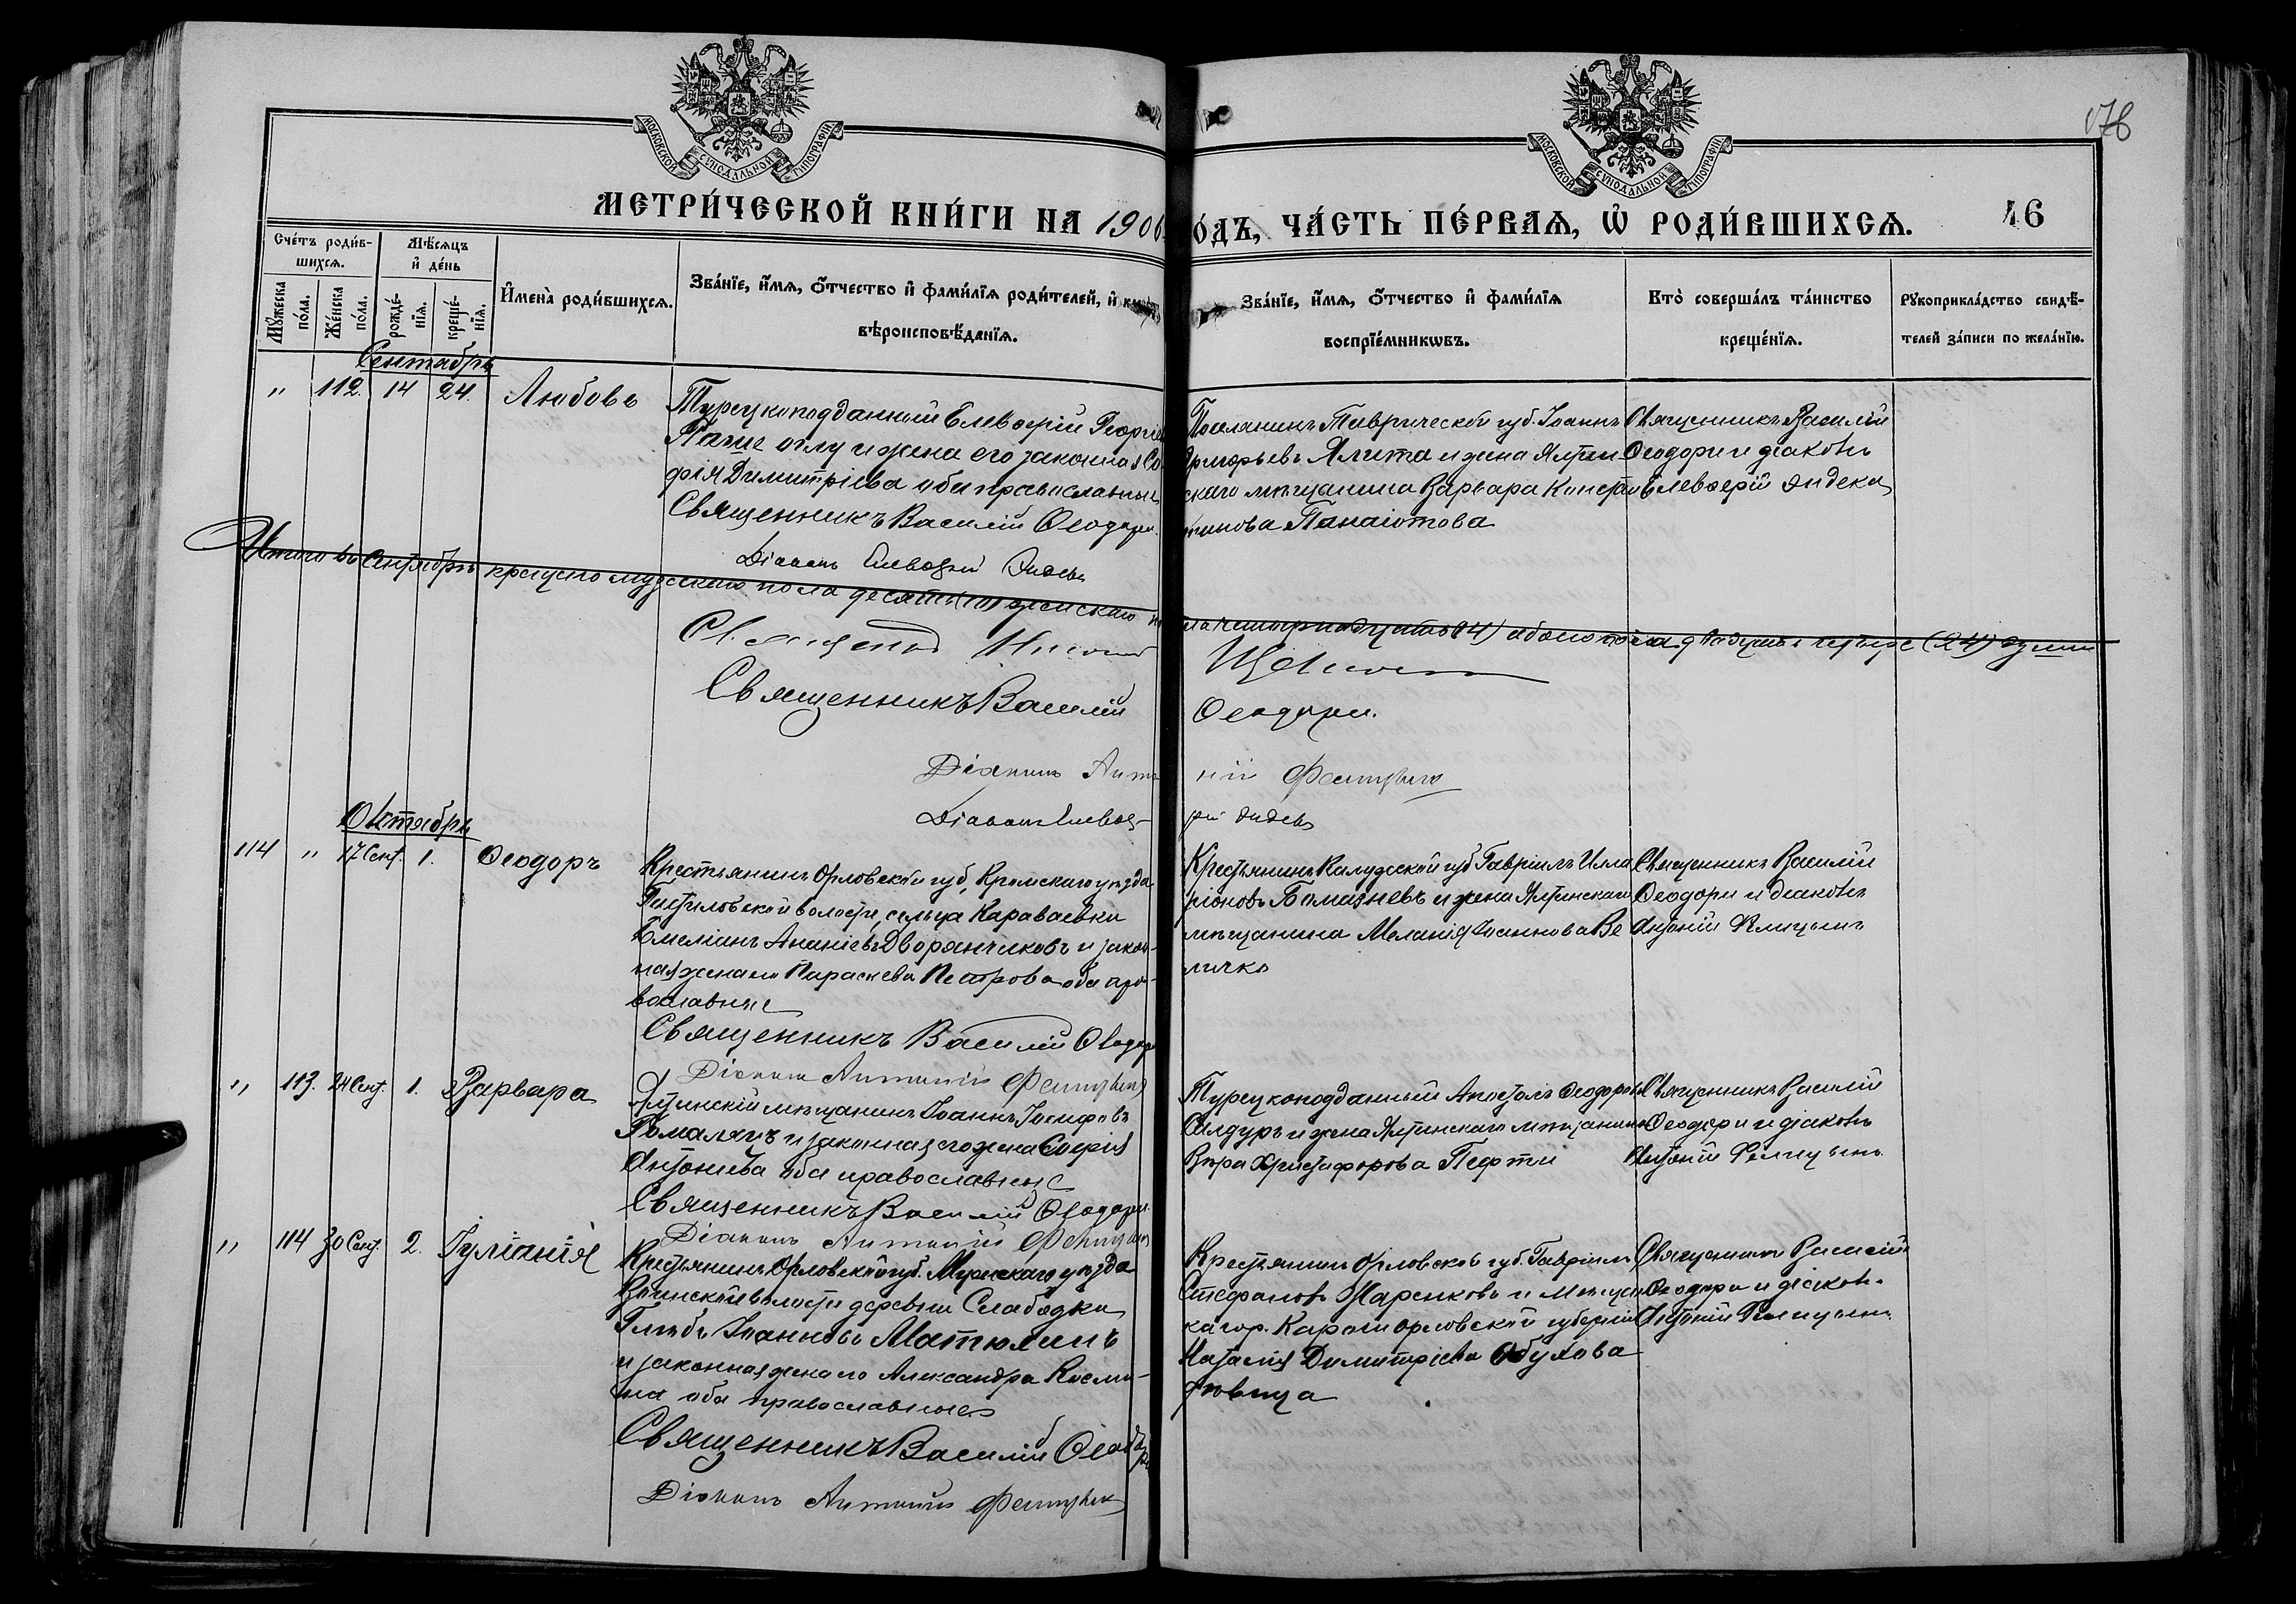 178
МОСКОВСКОЙ СУНОДАЛЬНОЙ ТИПОГРАФІИ
МОСКОВСКОЙ СУНОДАЛЬНОЙ ТИПОГРАФІИ
МЕТРИ́ЧЕСКОЙ КНИ́ГИ НА 1906
О́ДЪ, ЧА́СТЬ ПЕ́РВАѦ, Ѡ҆ РОДИ́ВШИХСѦ.
46
Сче́тъ роди́в-
шихсѧ.
Мѣ́сѧцъ
и҆ де́нь
Мꙋ́жеска
по́ла.
Же́нска
по́ла.
рожде́-
нїѧ.
креще́-
нїѧ.
И҆мена̀ роди́вшихсѧ.
Зва́нїе, и҆́мѧ, ѻ҆́тчество и҆ фами́лїѧ роди́телей, и҆
вѣроисповѣ́данїѧ.
Зва́нїе, и҆́мѧ, ѻ҆́тчество и҆ фами́лїѧ
воспрїе́мникѡвъ.
Кто̀ соверша́лъ та́инство
креще́нїѧ.
Рꙋкоприкла́дство свидѣ́-
телей за́писи по жела́нїю.
Сентябрь
" 112. 14 24. Любовь
Турецкоподданный Елевѳерій Георгіев
оглу и жена его законная Со-
фія Димитріева оба православные
Священникъ Василій Ѳеодори.
Діаконъ Елевѳерій
Поселянинъ Таврической губ. Іоаннъ
Григорьевъ Ялита и жена Ялтин-
скаго мѣщанина Варвара Констан
тинова Панаіотова
Священникъ Василій
Ѳеодори и діаконъ
Елевѳерій
Итого въ Сентябрѣ крещено мужскаго пола десять (10) женскаго по
ла четырнадцать (14) обоего пола двадцать четыре (24) души
Священникъ
Священникъ Василій
Ѳеодори.
Діаконъ Анто
ній
Діаконъ Елевѳе-
рій
Октябрь
114 " 17 Сент. 1. Ѳеодоръ
Крестьянинъ Орловской губ, Кромскаго уѣзда
волости, сельца Караваевки
Емеліанъ Ананіевъ Дворянчиковъ и закон-
ная жена его Параскева Петрова оба пра-
вославные
Священникъ Василій Ѳеодори
Діаконъ Антоній
Крестьянинъ Калужской губ Гавріилъ Илла
ріоновъ и жена Ялтинскаго
мѣщанина Меланія Іоаннова Ве
личко
Священникъ Василій
Ѳеодори и діаконъ
Антоній
" 113. 24 Сент. 1. Варвара
Ялтинскій мѣщанинъ Іоаннъ Іосифовъ
и законная его жена Софія
Антоніева оба православные
Священникъ Василій Ѳеодори.
Діаконъ Антоній
Турецкоподданный Апостолъ Ѳеодоровъ
и жена Ялтинскаго мѣщанина
Вѣра Христофорова
Священникъ Василій
Ѳеодори и діаконъ
Антоній
" 114 30 Сент. 2. Іуліанія
Крестьянинъ Орловской губ. Мценскаго уѣзда
Воинской волости деревни Слабодки
Глѣбъ Іоанновъ Матюхинъ
и законная жена его Александра Косми-
на оба православные
Священникъ Василій Ѳеодори
Діаконъ Антоній
Крестьянинъ Орловской губ. Гавріилъ
Стефановъ Марсиковъ и мѣщан
ка гор. Орловской губерніи
Наталія Димитріева Обухова
дѣвица
Священникъ Василій
Ѳеодори и діаконъ
Антоній